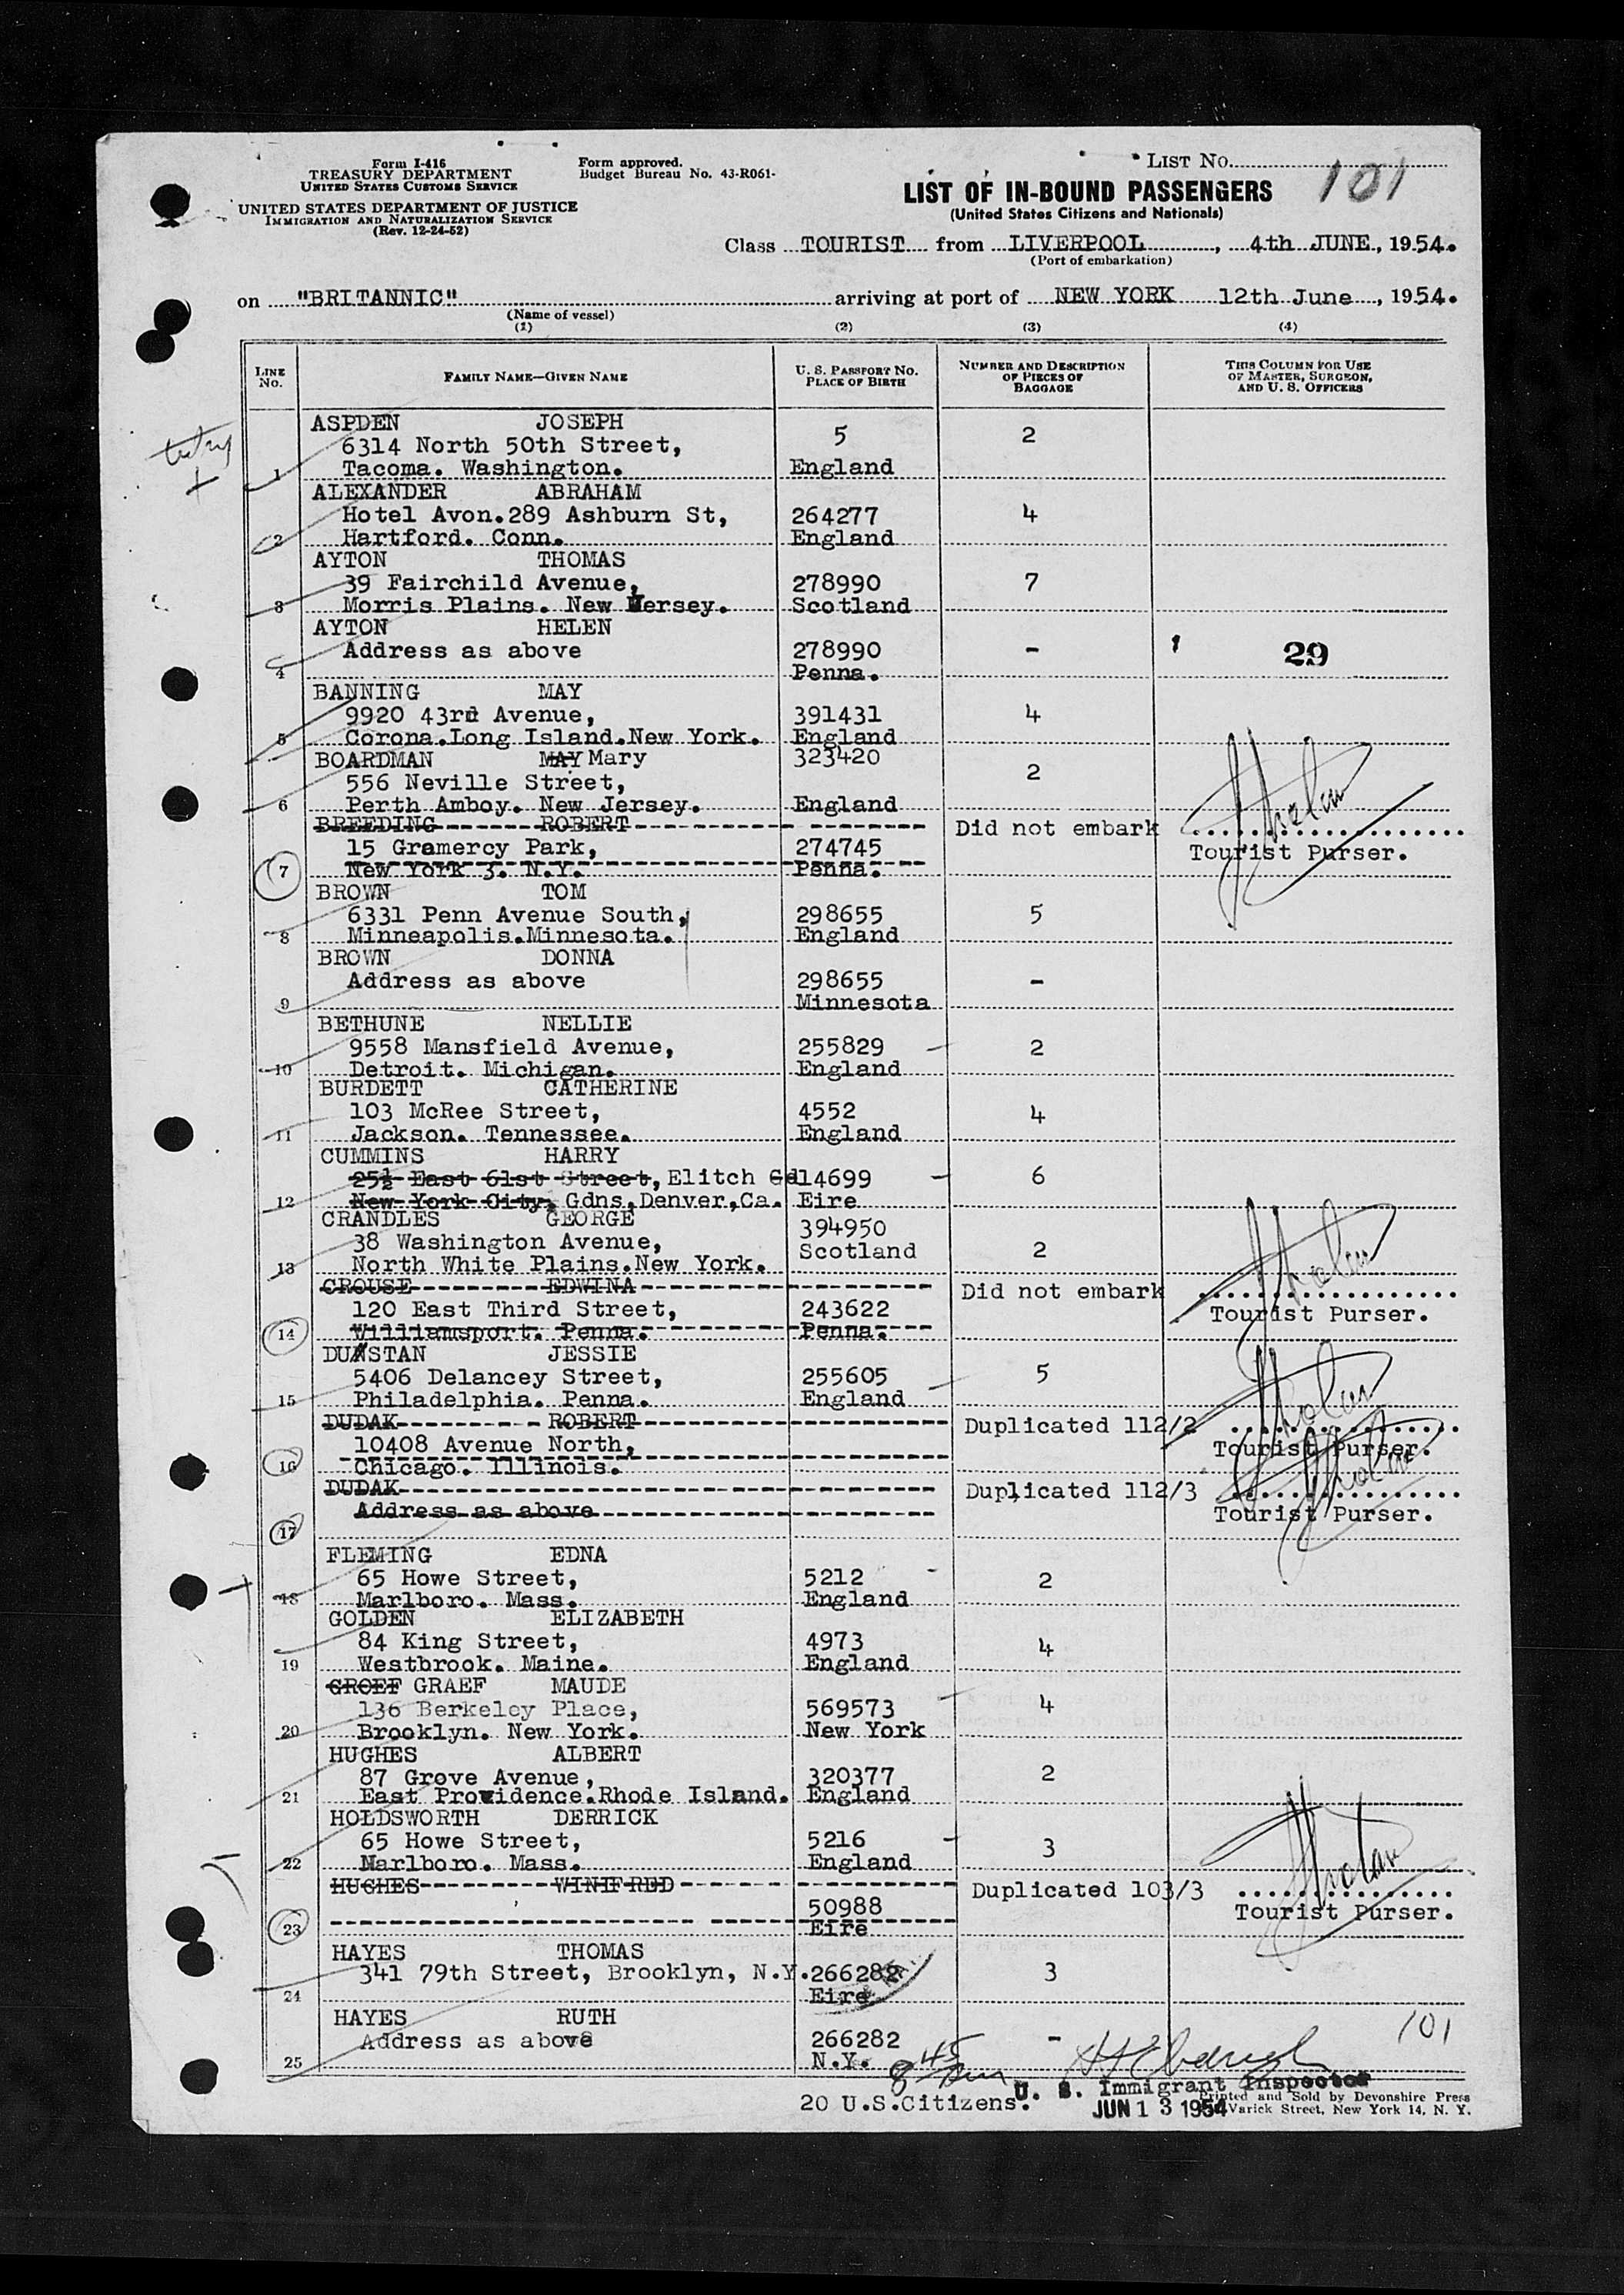 Form I-416
TREASURY DEPARTMENT
UNITED STATES CUSTOMS SERVICE
UNITED STATES DEPARTMENT OF JUSTICE
IMMIGRATION AND NATURALIZATION SERVICE
(Rev. 12-24-52)
Form approved.
Budget Bureau No. 43-R061-
LIST No. 101
LIST OF IN-BOUND PASSENGERS
(United States Citizens and Nationals)
Class TOURIST from LIVERPOOL, 4th JUNE, 1954.
(Port of embarkation)
on "BRITANNIC" arriving at port of NEW YORK 12th June, 1954.
(Name of vessel)
(1) (2) (3) (4)
LINE No. FAMILY NAME—GIVEN NAME U. S. PASSPORT No. PLACE OF BIRTH NUMBER AND DESCRIPTION OF PIECES OF BAGGAGE THIS COLUMN FOR USE OF MASTER, SURGEON, AND U. S. OFFICERS
ASPDEN JOSEPH
6314 North 50th Street, 5 2
1 Tacoma. Washington. England
ALEXANDER ABRAHAM
Hotel Avon.289 Ashburn St, 264277 4
2 Hartford. Conn. England
AYTON THOMAS
39 Fairchild Avenue, 278990 7
3 Morris Plains. New Jersey. Scotland
AYTON HELEN
Address as above 278990 - 29
4 Penna.
BANNING MAY
9920 43rd Avenue, 391431 4
5 Corona.Long Island.New York. England
BOARDMAN MAY Mary 323420
556 Neville Street, 2
6 Perth Amboy. New Jersey. England
BREEDING ROBERT Did not embark
15 Gramercy Park, 274745 Tourist Purser.
7 New York 3. N.Y. Penna.
BROWN TOM
6331 Penn Avenue South, 298655 5
8 Minneapolis.Minnesota. England
BROWN DONNA
Address as above 298655 -
9 Minnesota
BETHUNE NELLIE
9558 Mansfield Avenue, 255829 2
10 Detroit. Michigan. England
BURDETT CATHERINE
103 McRee Street, 4552 4
11 Jackson. Tennessee. England
CUMMINS HARRY
25½ East 61st Street, Elitch Gd 14699 6
12 New York City, Gdns,Denver,Ca. Eire
CRANDLES GEORGE 394950
38 Washington Avenue, Scotland 2
13 North White Plains.New York.
CROUSE EDWINA Did not embark
120 East Third Street, 243622 Tourist Purser.
14 Williamsport. Penna. Penna.
DUNSTAN JESSIE
5406 Delancey Street, 255605 5
15 Philadelphia. Penna. England
DUDAK ROBERT Duplicated 112/2
10408 Avenue North, Tourist Purser.
16 Chicago. Illinois.
DUDAK Duplicated 112/3
Address as above Tourist Purser.
17
FLEMING EDNA
65 Howe Street, 5212 2
18 Marlboro. Mass. England
GOLDEN ELIZABETH
84 King Street, 4973 4
19 Westbrook. Maine. England
GROEF GRAEF MAUDE
136 Berkeley Place, 569573 4
20 Brooklyn. New York. New York
HUGHES ALBERT
87 Grove Avenue, 320377 2
21 East Providence.Rhode Island. England
HOLDSWORTH DERRICK
65 Howe Street, 5216 3
22 Marlboro. Mass. England
HUGHES WINIFRED Duplicated 103/3
50988 Tourist Purser.
23 Eire
HAYES THOMAS
341 79th Street, Brooklyn, N.Y. 266282 3
24 Eire
HAYES RUTH 101
Address as above 266282 -
25 N.Y.
8 45
20 U.S.Citizens. U. S. Immigrant Inspector
JUN 13 1954
Printed and Sold by Devonshire Press
Varick Street, New York 14, N. Y.